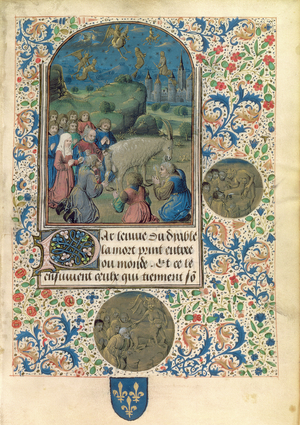 Par lenuie du dyable
la mort print entree
ou monde. Et ce le
ensuiuent ceulx qui tiennent so